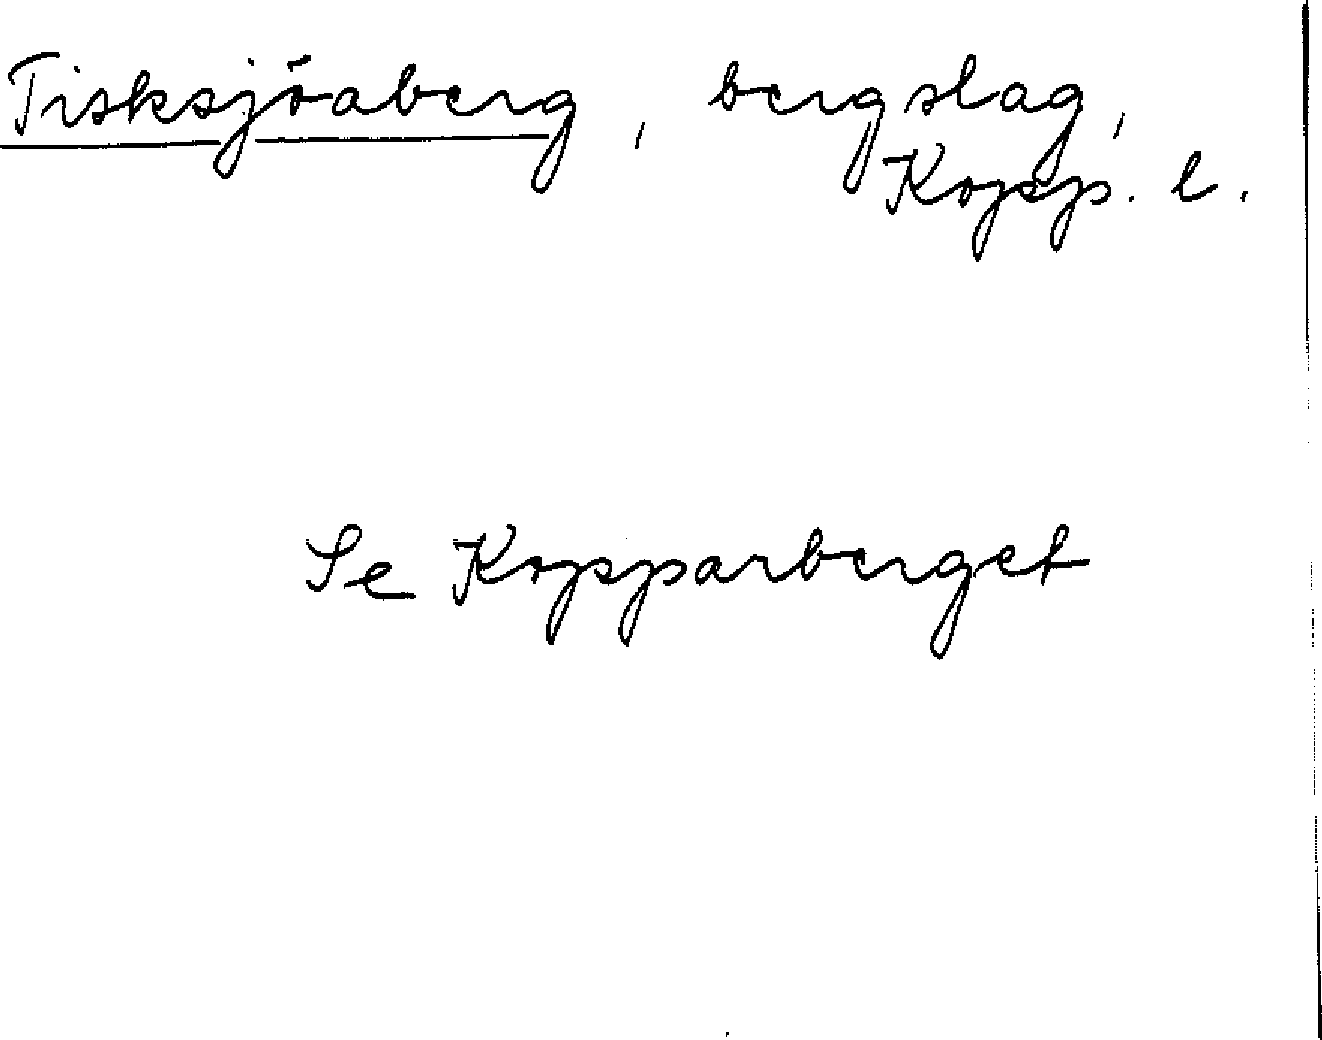 Tisksjöaberg, bergslag,
Kopp. l.
Se Kopparberget